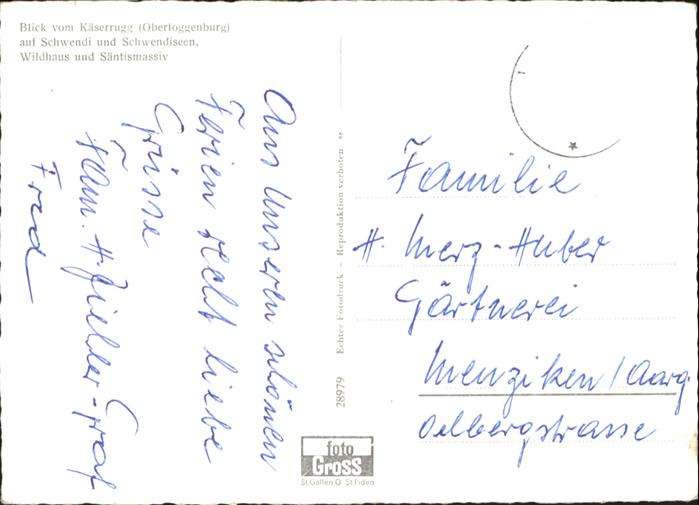 Blick vom Käserrugg (Obertoggenburg)
auf Schwendi und Schwendiseen,
Wildhaus und Säntismassiv
Aus Unseren schönen
Ferien recht liebe
Grüsse
Fam. H.
Graf
Fred
28979 Echter Fotodruck - Reproduktion verboten
foto
Gross
St. Gallen O St. Fiden
Familie
H. Merz-Huber
Gärtnerei
Menziken / Aarg
Oelbergstrasse